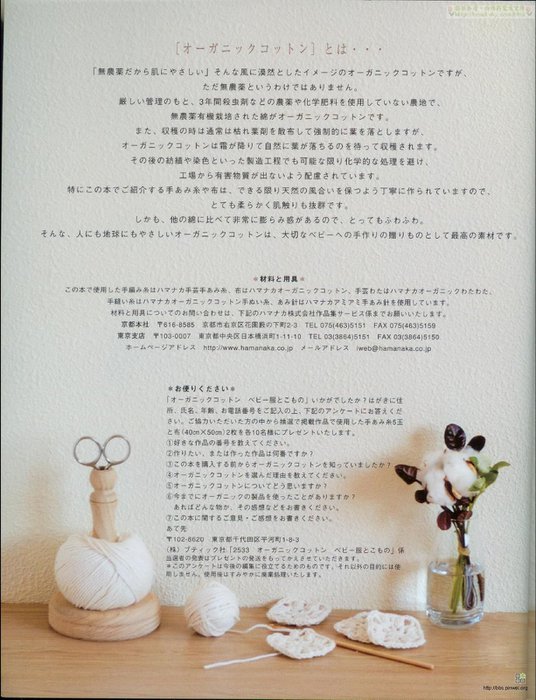 [オーガニックコットン] とは・・・
「無農薬だから肌にやさしい」そんな風に漠然としたイメージのオーガニックコットンですが、
ただ無農薬というわけではありません。
厳しい管理のもと、3年間殺虫剤などの農薬や化学肥料を使用していない農地で、
無農薬有機栽培された綿がオーガニックコットンです。
また、収穫の時は通常は枯れ葉剤を散布して強制的に葉を落としますが、
オーガニックコットンは霜が降りて自然に葉が落ちるのを待って収穫されます。
その後の紡績や染色といった製造工程でも可能な限り化学的な処理を避け、
工場から有害物質が出ないよう配慮されています。
特にこの本でご紹介する手あみ糸や布は、できる限り天然の風合いを保つよう丁寧に作られていますので、
とても柔らかく肌触りも抜群です。
しかも、他の綿に比べて非常に膨らみ感があるので、とってもふわふわ。
そんな、人にも地球にもやさしいオーガニックコットンは、大切なベビーへの手作りの贈りものとして最高の素材です。
＊材料と用具＊
この本で使用した手編み糸はハマナカ手芸手あみ糸、布はハマナカオーガニックコットン、手芸わたはハマナカオーガニックわたわた、
手縫い糸はハマナカオーガニックコットン手ぬい糸、あみ針はハマナカアミアミ手あみ針を使用しています。
材料と用具についてのお問い合わせは、下記のハマナカ株式会社作品集サービス係までお願いいたします。
京都本社 〒616-8585 京都市右京区花園薮の下町2-3 TEL 075(463)5151 FAX 075(463)5159
東京支店 〒103-0007 東京都中央区日本橋浜町1-11-10 TEL 03(3864)5151 FAX 03(3864)5150
ホームページアドレス http://www.hamanaka.co.jp メールアドレス iweb@hamanaka.co.jp
＊お便りください＊
「オーガニックコットン ベビー服とこもの」いかがでしたか？はがきに住
所、氏名、年齢、お電話番号をご記入の上、下記のアンケートにお答えくだ
さい。ご協力いただいた方の中から抽選で掲載作品で使用した手あみ糸5玉
と布(40cm×50cm)2枚を各10名様にプレゼントいたします。
①好きな作品の番号を教えてください。
②作りたい、または作った作品は何番ですか？
③この本を購入する前からオーガニックコットンを知っていましたか？
④オーガニックコットンを選んだ理由を教えてください。
⑤オーガニックコットンについてどう思いますか？
⑥今までにオーガニックの製品を使ったことがありますか？
あればどんな物か、その感想などをお書きください。
⑦この本に関するご意見・ご感想をお書きください。
あて先
〒102-8620 東京都千代田区平河町1-8-3
(株) ブティック社「2533 オーガニックコットン ベビー服とこもの」係
当選者の発表はプレゼントの発送をもってかえさせていただきます。
＊このアンケートは今後の編集に役立てるためのものです。それ以外の目的には使
用しません。使用後はすみやかに廃棄処理いたします。
http://bbs.pinwei.org